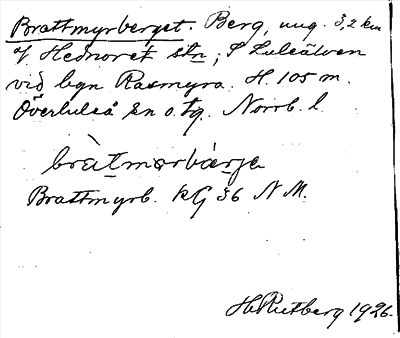 Brattmyrberget. Berg, ung. 3,2 km
af Hednoret stn; S Luleälven
vid byn Rasmyra. H. 105 m.
Överluleå sn o. tg. Norrb. l.
bràtmørbárja
Brattmyrb. kG 36 N M.
H. Rutberg 1926.